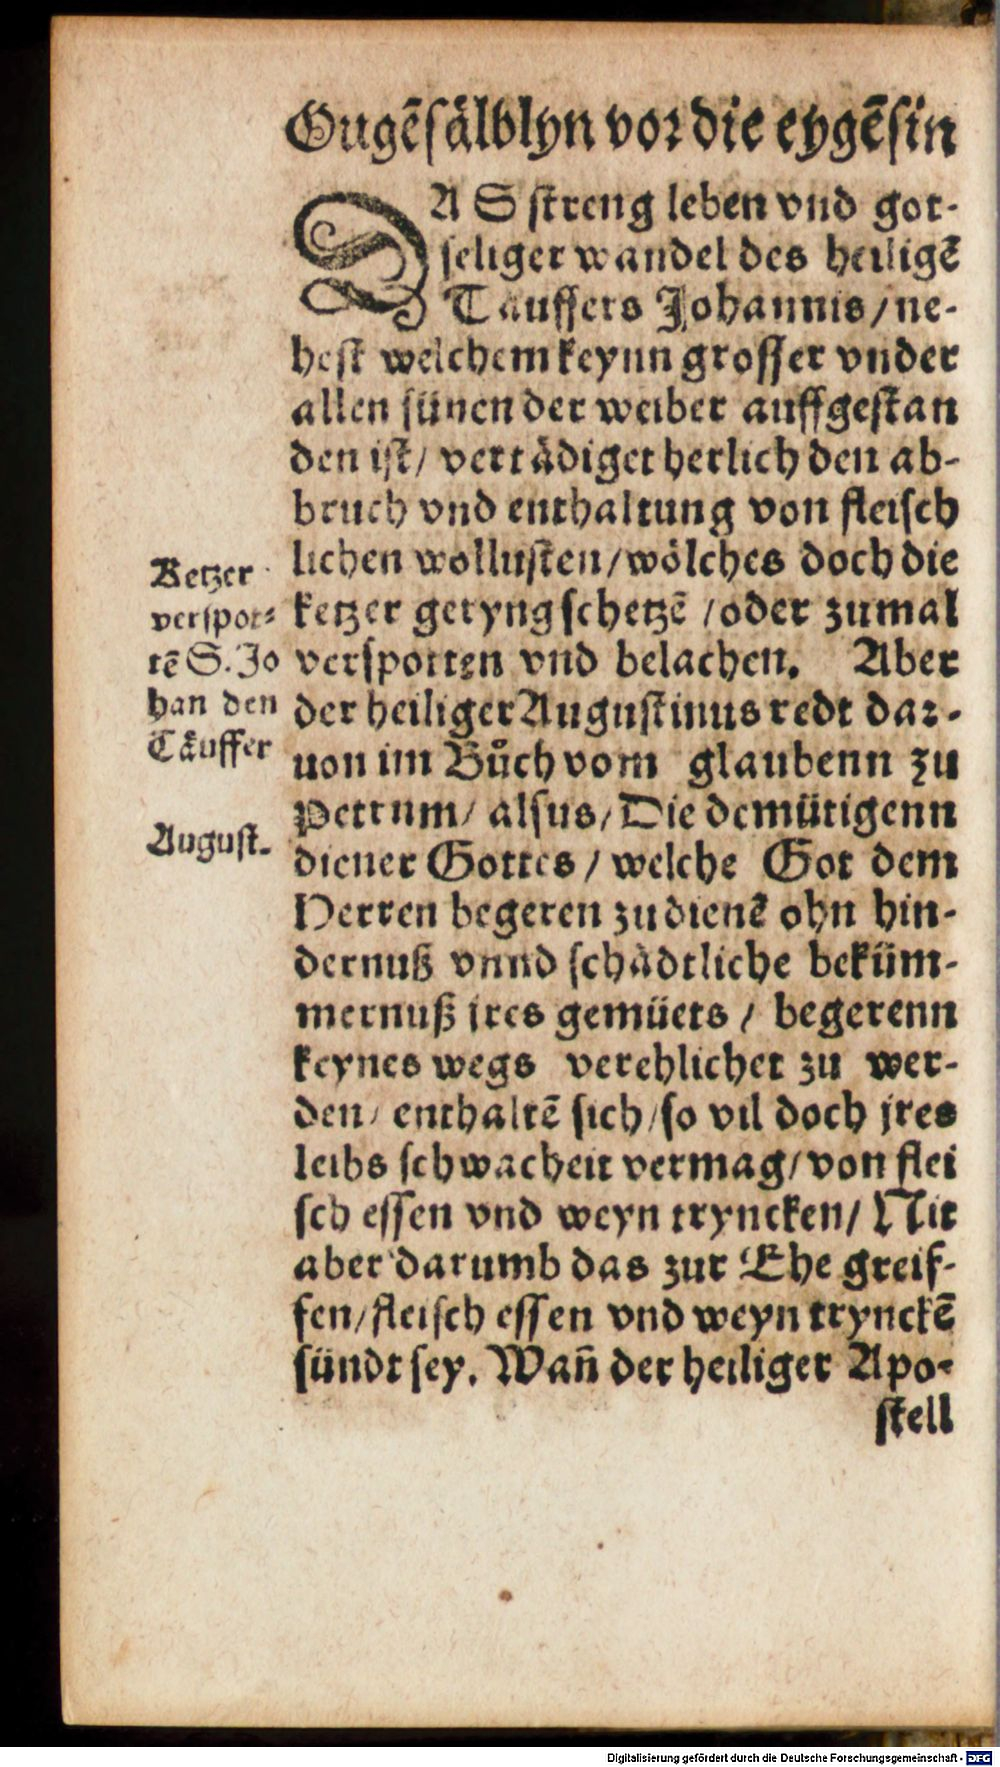 Ougẽsälblyn vor die eygẽsin
DAS streng leben vnd got-
seliger wandel des heiligẽ
Täuffers Johannis/ ne-
hest welchem keynn grosser vnder
allen sünen der weiber auffgestan
den ist/ vertädiget herlich den ab-
bruch vnd enthaltung von fleisch
lichen wollusten/ wölches doch die
ketzer geryng schetzẽ /oder zumal
verspotten vnd belachen. Aber
der heiliger Augustinus redt dar-
uon im Bůch vom glaubenn zu
Petrum/ alsus/ Die demütigenn
diener Gottes / welche Got dem
Herren begeren zu dienẽ ohn hin-
dernuß vnnd schädtliche beküm-
mernuß jres gemüets / begerenn
keynes wegs verehlichet zu wer-
den/ enthaltẽ sich/ so vil doch jres
leibs schwacheit vermag/ von flei
sch essen vnd weyn tryncken/ Nit
aber darumb das zur Ehe greif-
fen/ fleisch essen vnd weyn trynckẽ
sündt sey. Wañ der heiliger Apo-
stell
Ketzer
verspot-
tẽ S. Jo
han den
Täuffer
August.
Digitalisierung gefördert durch die Deutsche Forschungsgemeinschaft - DFG